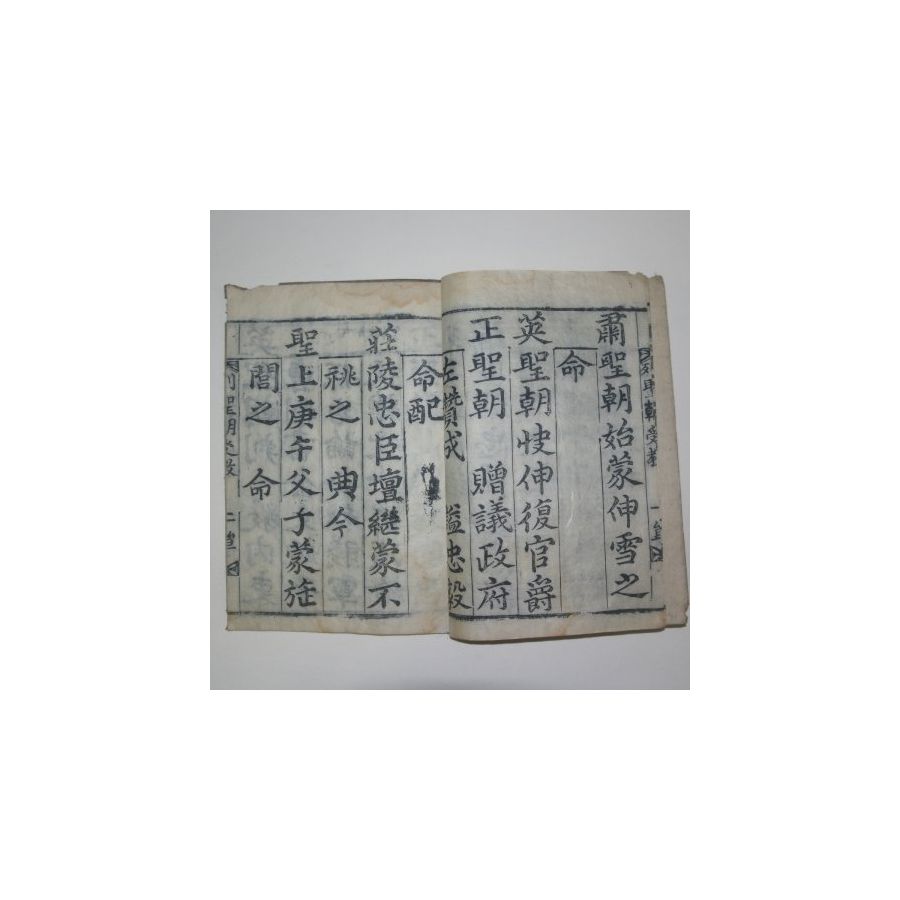 列聖朝受教
肅聖朝始蒙伸雪之
命
英聖朝快伸復官爵
正聖朝 贈議政府
左贊成 謚忠毅
命配
莊陵忠臣壇繼蒙不
祧之 典今
聖上庚午父子蒙旌
閭之 命
列聖朝受教